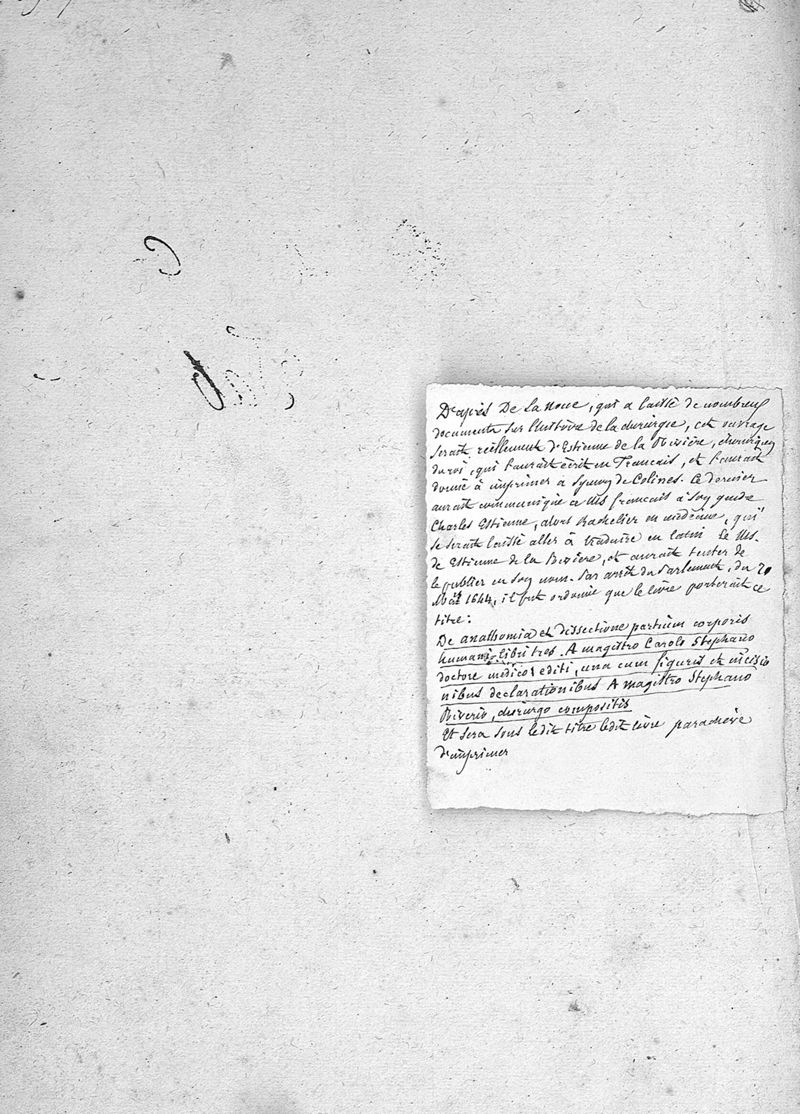 D'après De la Noue, qui a laissé de nombreux
documents sur l'histoire de la chirurgie, cet ouvrage
serait réellement d'Estienne de la Rivière, chirurgien
du roi, qui l'aurait écrit en Français, et l'aurait
donné à imprimer à Symon de Colines. Ce dernier
aurait communiqué ce Ms français à son gendre
Charles Estienne, alors Bachelier en médecine, qui
se serait laissé aller à traduire en latin le Ms.
de Estienne de la Rivière, et aurait tenter de
le publier en son nom. Par arrêt du Parlement, du 20
1544, il fut ordonné que le livre porterait ce
titre:
De anathomia et dissectione partium corporis
humani libri tres. A magistro Carolo Stephano
doctore medico editi, una cum figuris et incisio
nibus declarationibus A magistro Stephano
Riverio, chirurgo compositis
Et sera sous ledit titre ledit livre parachevé
d'imprimer